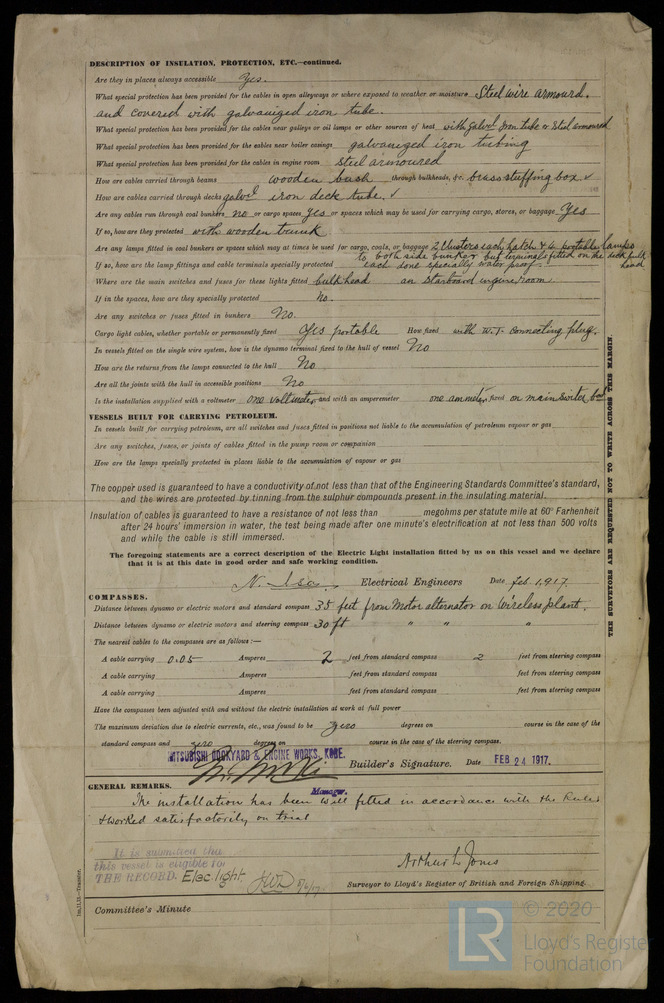 DESCRIPTION OF INSULATION, PROTECTION, ETC.—continued.
Are they in places always accessible Yes.
What special protection has been provided for the cables in open alleyways or where exposed to weather or moisture Steel wire armourd.
and covered with galvanized iron tube.
What special protection has been provided for the cables near galleys or oil lamps or other sources of heat with galvd iron tube or steel armoured
What special protection has been provided for the cables near boiler casings galvanized iron tubing
What special protection has been provided for the cables in engine room steel armoured
How are cables carried through beams wooden bush through bulkheads, &c. brass stuffing box ✓
How are cables carried through decks galvd iron deck tube. ✓
Are any cables run through coal bunkers no or cargo spaces yes or spaces which may be used for carrying cargo, stores, or baggage Yes
If so, how are they protected with wooden trunk
Are any lamps fitted in coal bunkers or spaces which may at times be used for cargo, coals, or baggage 2 clusters each hatch & 4 portable lamps
to both side bunker but terminals fitted on the deck bulk
If so, how are the lamp fittings and cable terminals specially protected each done specially water proof. head
Where are the main switches and fuses for these lights fitted bulkhead on starboard engine room
If in the spaces, how are they specially protected No.
Are any switches or fuses fitted in bunkers No.
Cargo light cables, whether portable or permanently fixed Yes portable How fixed with W.T. connecting plug.
In vessels fitted on the single wire system, how is the dynamo terminal fixed to the hull of vessel No
How are the returns from the lamps connected to the hull No
Are all the joints with the hull in accessible positions No
Is the installation supplied with a voltmeter one voltmeter and with an amperemeter one ammeter fixed on main switch bod
VESSELS BUILT FOR CARRYING PETROLEUM.
In vessels built for carrying petroleum, are all switches and fuses fitted in positions not liable to the accumulation of petroleum vapour or gas
Are any switches, fuses, or joints of cables fitted in the pump room or companion
How are the lamps specially protected in places liable to the accumulation of vapour or gas
The copper used is guaranteed to have a conductivity of not less than that of the Engineering Standards Committee's standard,
and the wires are protected by tinning from the sulphur compounds present in the insulating material.
Insulation of cables is guaranteed to have a resistance of not less than megohms per statute mile at 60° Farhenheit
after 24 hours' immersion in water, the test being made after one minute's electrification at not less than 500 volts
and while the cable is still immersed.
The foregoing statements are a correct description of the Electric Light installation fitted by us on this vessel and we declare
that it is at this date in good order and safe working condition.
Electrical Engineers Date Feb 1, 1917.
COMPASSES.
Distance between dynamo or electric motors and standard compass 35 feet from Motor alternator on Wireless plant.
Distance between dynamo or electric motors and steering compass 30 ft " " "
The nearest cables to the compasses are as follows:—
A cable carrying 0.05 Amperes 2 feet from standard compass 2 feet from steering compass
A cable carrying Amperes feet from standard compass feet from steering compass
A cable carrying Amperes feet from standard compass feet from steering compass
Have the compasses been adjusted with and without the electric installation at work at full power
The maximum deviation due to electric currents, etc., was found to be zero degrees on course in the case of the
standard compass and zero degrees on course in the case of the steering compass.
MITSUBISHI DOCKYARD & ENGINE WORKS, KOBE.
Builder's Signature. Date FEB 24 1917.
Manager.
GENERAL REMARKS.
The installation has been well fitted in accordance with the Rules
& worked satisfactorily on trial
It is submitted that
this vessel is eligible for
THE RECORD. Elec. light
Arthur L Jones
Surveyor to Lloyd's Register of British and Foreign Shipping.
Committee's Minute
THE SURVEYORS ARE REQUESTED NOT TO WRITE ACROSS THIS MARGIN.
LR
© 2020
Lloyd's Register
Foundation